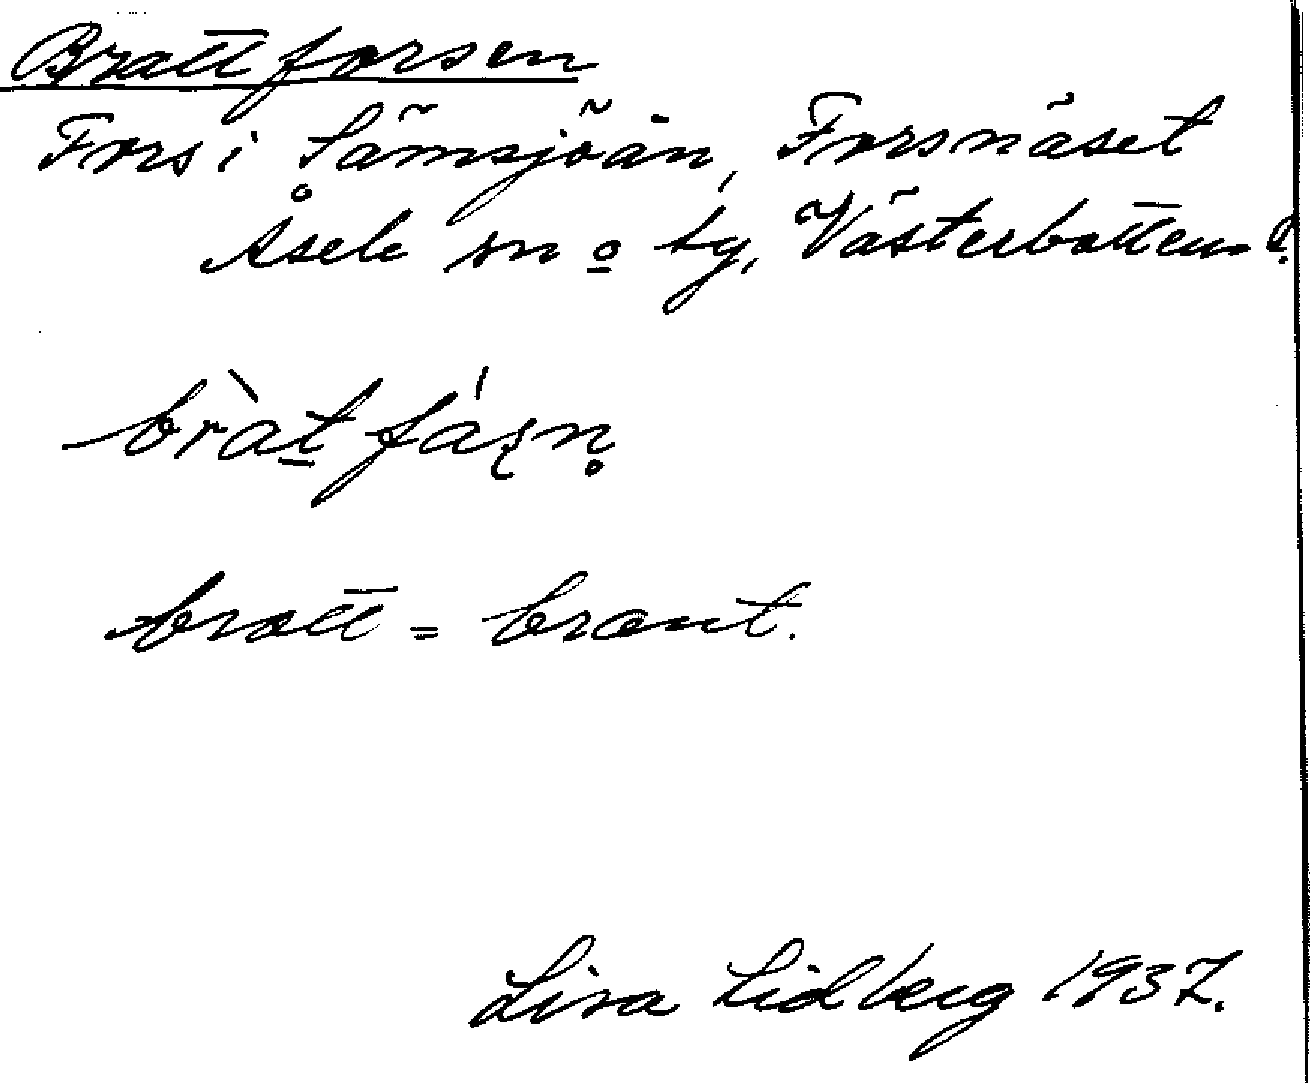 Brattforsen
Fors i Sämsjöån, Forsnäset
Åsele sn o tg, Västerbottens l.
bràt fáʂn̥
bratt = brant.
Lisa Lidberg 1937.